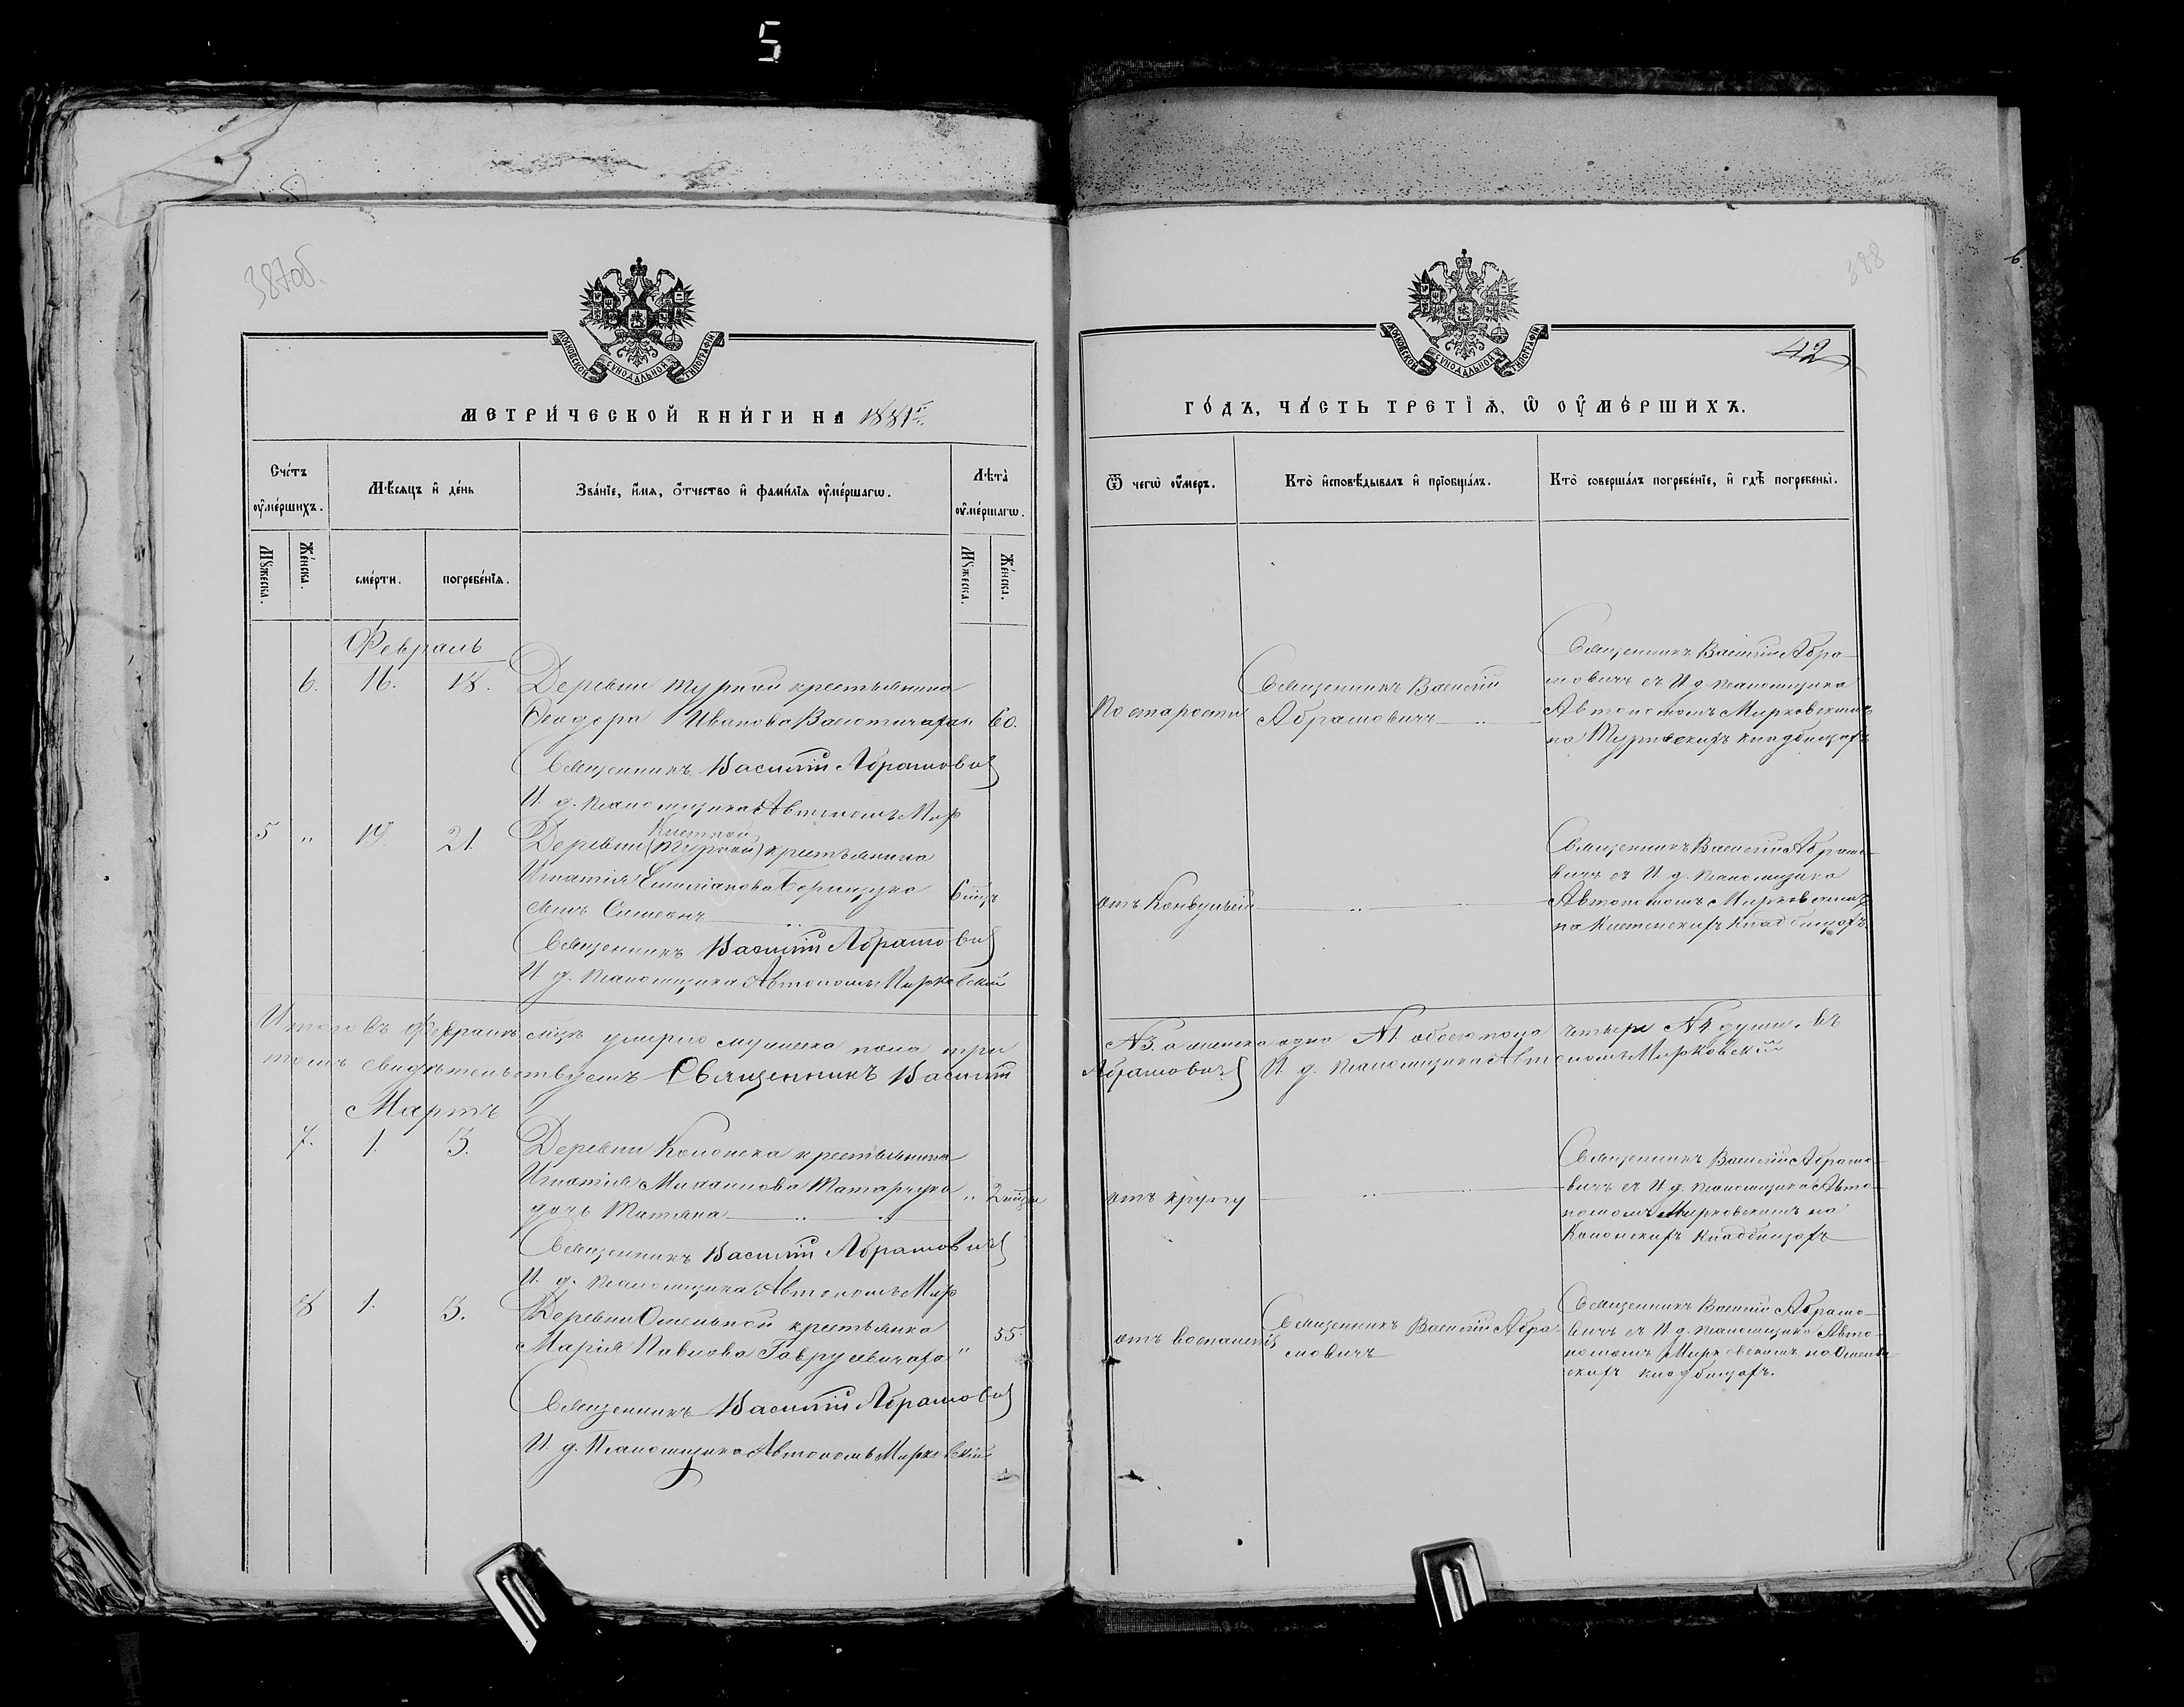 5
387об.
МОСКОВСКОЙ СѴНОДАЛЬНОЙ ТИПОГРАФІИ
МЕТРИ́ЧЕСКОЙ КНИ́ГИ НА 1881 г.
Сче́тъ ᲂу҆ме́ршихъ.
Мѣ́сяцъ и҆ де́нь
Зва́нїе, и҆́мя, ѻ҆́тчество и҆ фами́лїя ᲂу҆ме́ршагѡ.
Лѣ́та ᲂу҆ме́ршагѡ.
Мꙋ́жеска.
Же́нска.
сме́рти.
погребе́нїя.
Мꙋ́жеска.
Же́нска.
Февраль
6. 16. 18. Деревни Турной крестьянина
Ѳеодора Иванова 60.
Священникъ Василій Абрамовичъ
И. д. псаломщика Автономъ Мир
5 " 19. 21. Клетной
Деревни (Турной) крестьянина
Игнатія Емиліанова
сынъ Симеонъ
Священникъ Василій Абрамовичъ
И. д. псаломщика Автономъ Мирковскій
Итого въ Февралѣ мцѣ умерло мужеска пола три
томъ свидѣтельствуетъ Священникъ Василій
Мартъ
7. 1. 3. Деревни Колонска крестьянина
Игнатія Михаилова Татарчука
дочь Татіана
Священникъ Василій Абрамовичъ
И. д. псаломщика Автономъ Мир
8 1. 3. Деревни Омельной крестьянка
Марія Павлова " 55.
Священникъ Василій Абрамовичъ
И. д. Псаломщика Автономъ Мирковскій
388
42
МОСКОВСКОЙ СѴНОДАЛЬНОЙ ТИПОГРАФІИ
ГО́ДЪ, ЧА́СТЬ ТРЕТІ́Я, Ѡ҆ ОУ҆МЕ́РШИХЪ.
Ѿ чегѡ̀ ᲂу҆́меръ.
Кто̀ и҆сповѣ́дывалъ и҆ прїѻбща́лъ.
Кто̀ соверша́лъ погребе́нїе, и҆ гдѣ̀ погребены̀.
По старости
Священникъ Василій
Абрамовичъ
Священникъ Василій Абра-
мовичъ съ И д. псаломщика
Автономомъ Мирковскимъ
на Турнскихъ кладбищахъ
отъ Конвульсій
Священникъ Василій Абрамо-
вичъ съ И д. псаломщика
Автономомъ Мирковскимъ
на Клетскихъ кладбищахъ.
№3. а женска одна №1. обоего пола четыре №4 души. въ
Абрамовичъ И д. псаломщика Автономъ Мирковскій
отъ крупу
Священникъ Василій Абрамо-
вичъ съ И д. псаломщика Авто-
номомъ Мирковскимъ на
Колонскихъ кладбищахъ
отъ воспаленія
Священникъ Василій Абра-
мовичъ
Священникъ Василій Абрамо-
вичъ съ И д. псаломщика Авто-
номомъ Мирковскимъ на Омель-
скихъ кладбищахъ.